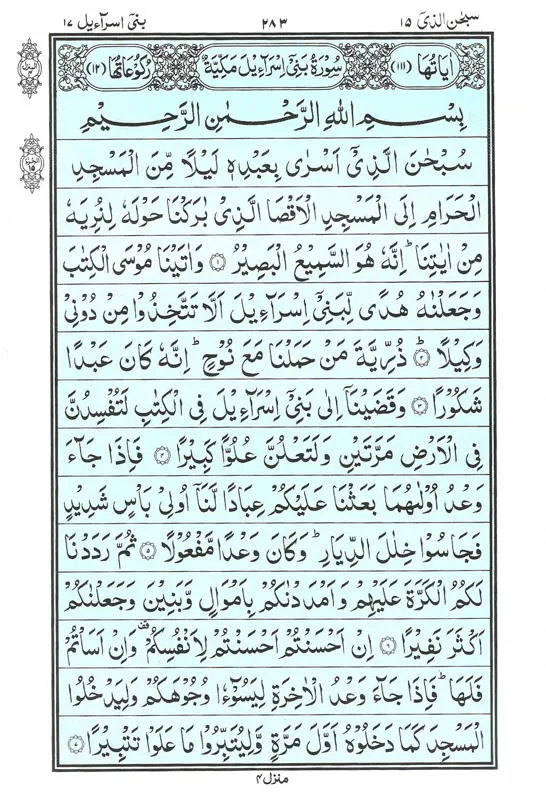 سبحٰن الذیۤ ۱۵ ۲۸۳ بنیۤ اسرآءیل ۱۷
اٰیَاتُهَا (۱۱۱) سُوْرَةُ بَنِیْۤ اِسْرَآءِیْلَ مَکِّیَّةٌ رُکُوْعَاتُهَا (۱۲)
بِسْمِ اللّٰهِ الرَّحْمٰنِ الرَّحِیْمِ
سُبْحٰنَ الَّذِیْۤ اَسْرٰی بِعَبْدِهٖ لَیْلًا مِّنَ الْمَسْجِدِ
الْحَرَامِ اِلَی الْمَسْجِدِ الْاَقْصَا الَّذِیْ بٰرَکْنَا حَوْلَهٗ لِنُرِیَهٗ
مِنْ اٰیٰتِنَا ؕ اِنَّهٗ هُوَ السَّمِیْعُ الْبَصِیْرُ ۱ وَاٰتَیْنَا مُوْسَی الْکِتٰبَ
وَجَعَلْنٰهُ هُدًی لِّبَنِیْۤ اِسْرَآءِیْلَ اَلَّا تَتَّخِذُوْا مِنْ دُوْنِیْ
وَکِیْلًا ۲ ذُرِّیَّةَ مَنْ حَمَلْنَا مَعَ نُوْحٍ ؕ اِنَّهٗ کَانَ عَبْدًا
شَکُوْرًا ۳ وَقَضَیْنَاۤ اِلٰی بَنِیْۤ اِسْرَآءِیْلَ فِی الْکِتٰبِ لَتُفْسِدُنَّ
فِی الْاَرْضِ مَرَّتَیْنِ وَلَتَعْلُنَّ عُلُوًّا کَبِیْرًا ۴ فَاِذَا جَآءَ
وَعْدُ اُوْلٰىهُمَا بَعَثْنَا عَلَیْکُمْ عِبَادًا لَّنَاۤ اُولِیْ بَاْسٍ شَدِیْدٍ
فَجَاسُوْا خِلٰلَ الدِّیَارِ ؕ وَکَانَ وَعْدًا مَّفْعُوْلًا ۵ ثُمَّ رَدَدْنَا
لَکُمُ الْکَرَّةَ عَلَیْهِمْ وَاَمْدَدْنٰکُمْ بِاَمْوَالٍ وَّبَنِیْنَ وَجَعَلْنٰکُمْ
اَکْثَرَ نَفِیْرًا ۶ اِنْ اَحْسَنْتُمْ اَحْسَنْتُمْ لِاَنْفُسِکُمْ وَاِنْ اَسَاْتُمْ
فَلَهَا ؕ فَاِذَا جَآءَ وَعْدُ الْاٰخِرَةِ لِیَسُوْٓءٗا وُجُوْهَکُمْ وَلِیَدْخُلُوا
الْمَسْجِدَ کَمَا دَخَلُوْهُ اَوَّلَ مَرَّةٍ وَّلِیُتَبِّرُوْا مَا عَلَوْا تَتْبِیْرًا ۷
منزل ۴